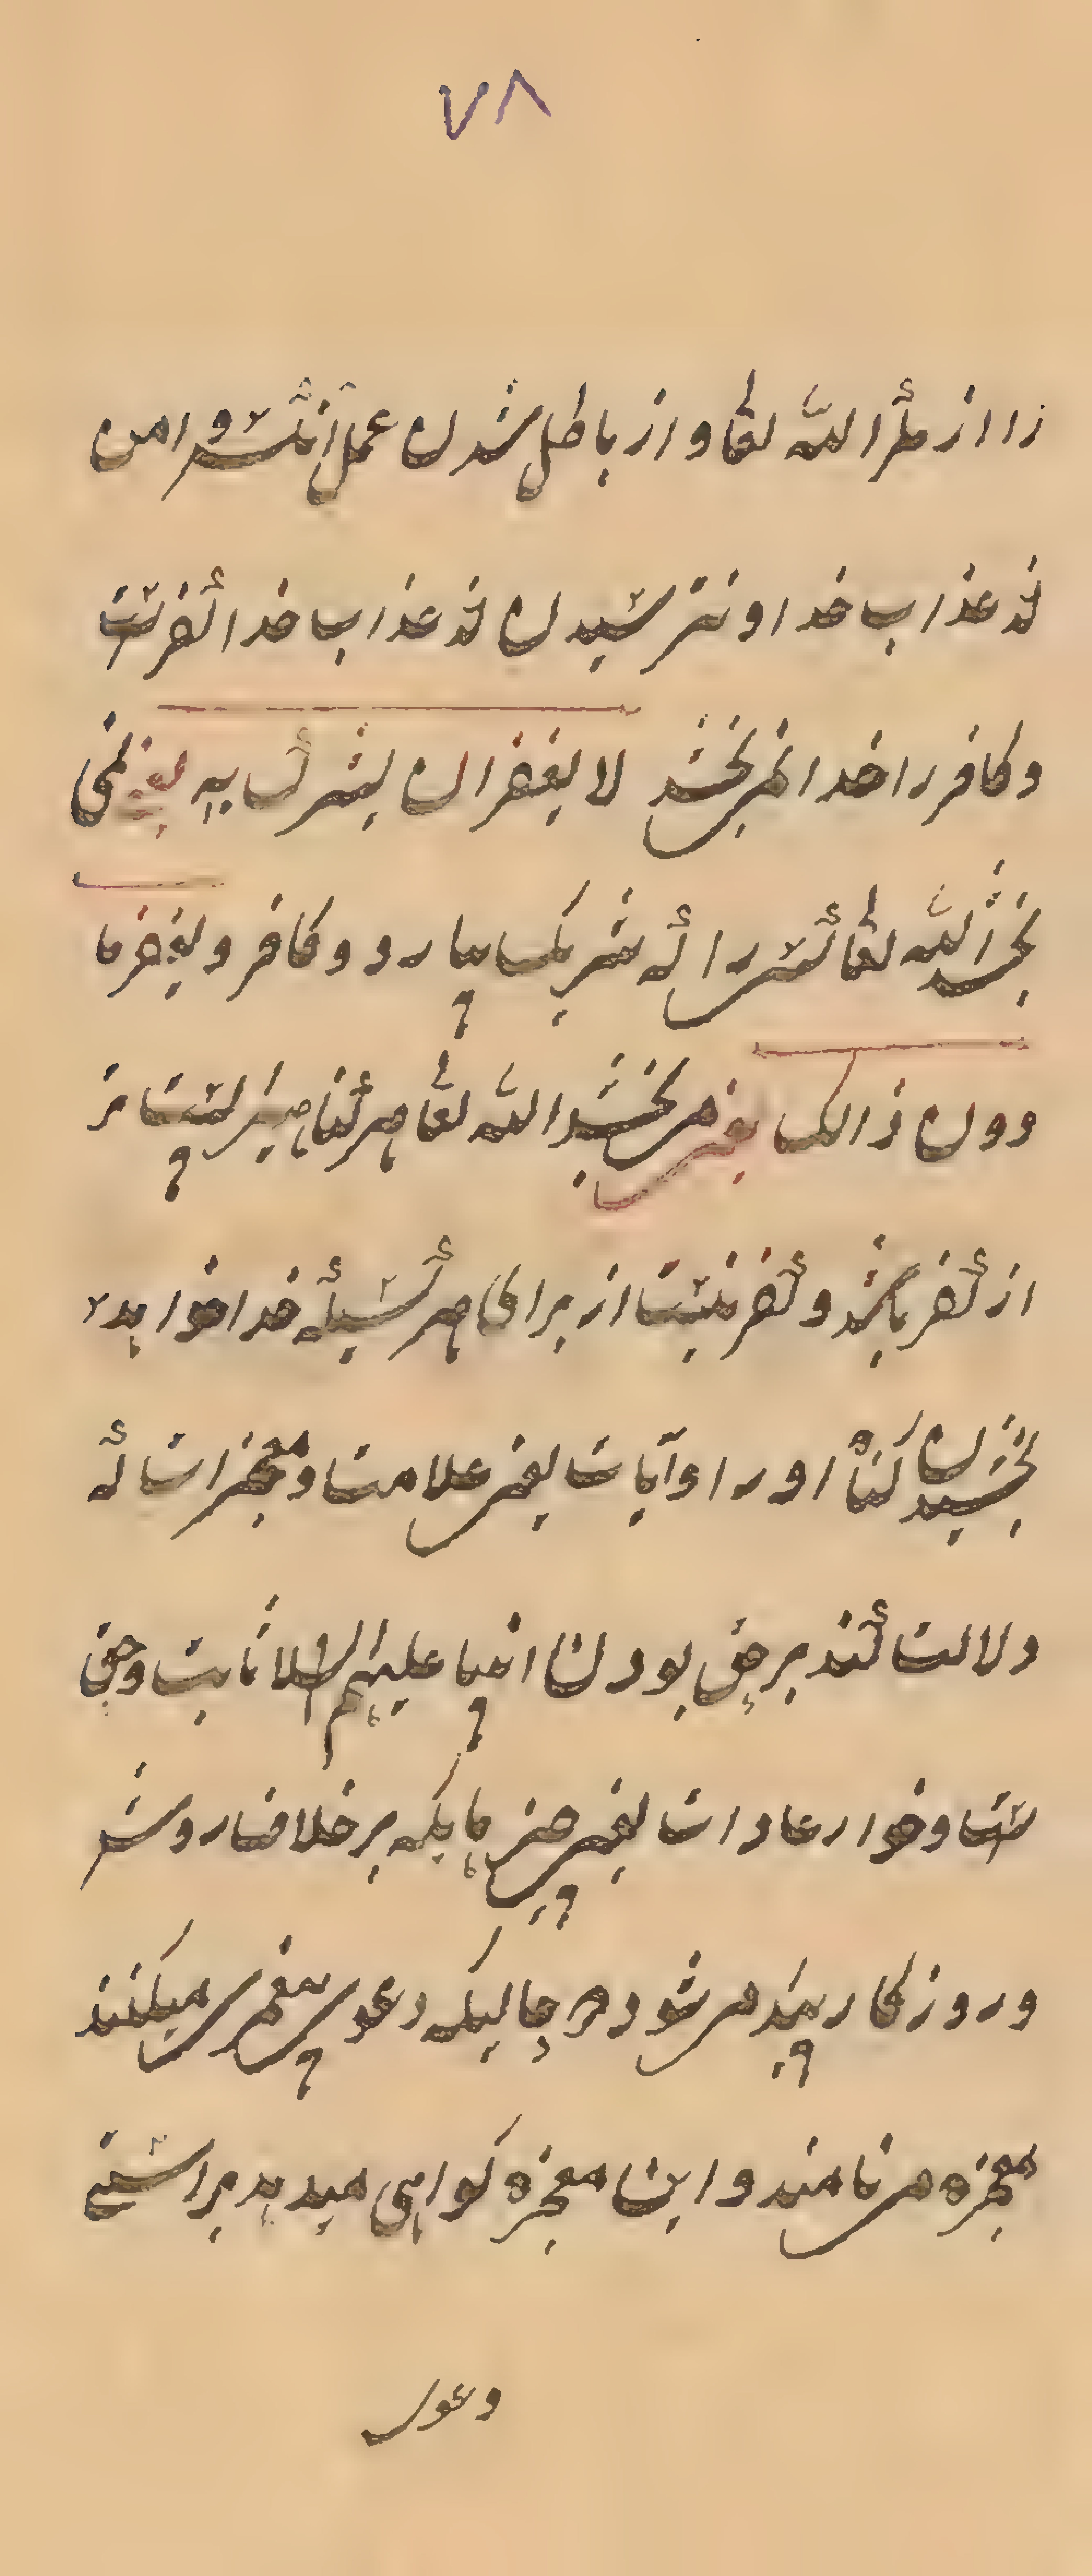 ٧٨
زا از مکر الله تعا و از باطل شدن عمل آنکس و امن
از عذاب خدا و نترسیدن از عذاب خدا کفر تست
و کافر را خدا نمی بخشد لا یغفر ان یشرک به یعنی نمی
بخشد الله تعا کسی را که شریک بیارد و کافر و یغفر ما
دون ذالک یعنی می بخشد الله تعا هر گناهی که نیست
از کفر باشد و کفر نیست از برای هر کسیکه خدا خواهد
بخشیدن گناه او را و آیات یعنی علامت و معجزات که
دلالت کند بر حق بودن انبیا علیهم السلام ثابت و حق
تست و خوارعادات یعنی چیزهاییکه بر خلاف روش
و روزگار پیدا می شود هر چالیکه دعوی پیغمبری میکنند
معجزه می نامند و این معجزه گواهی میدهد براستی
دعوی